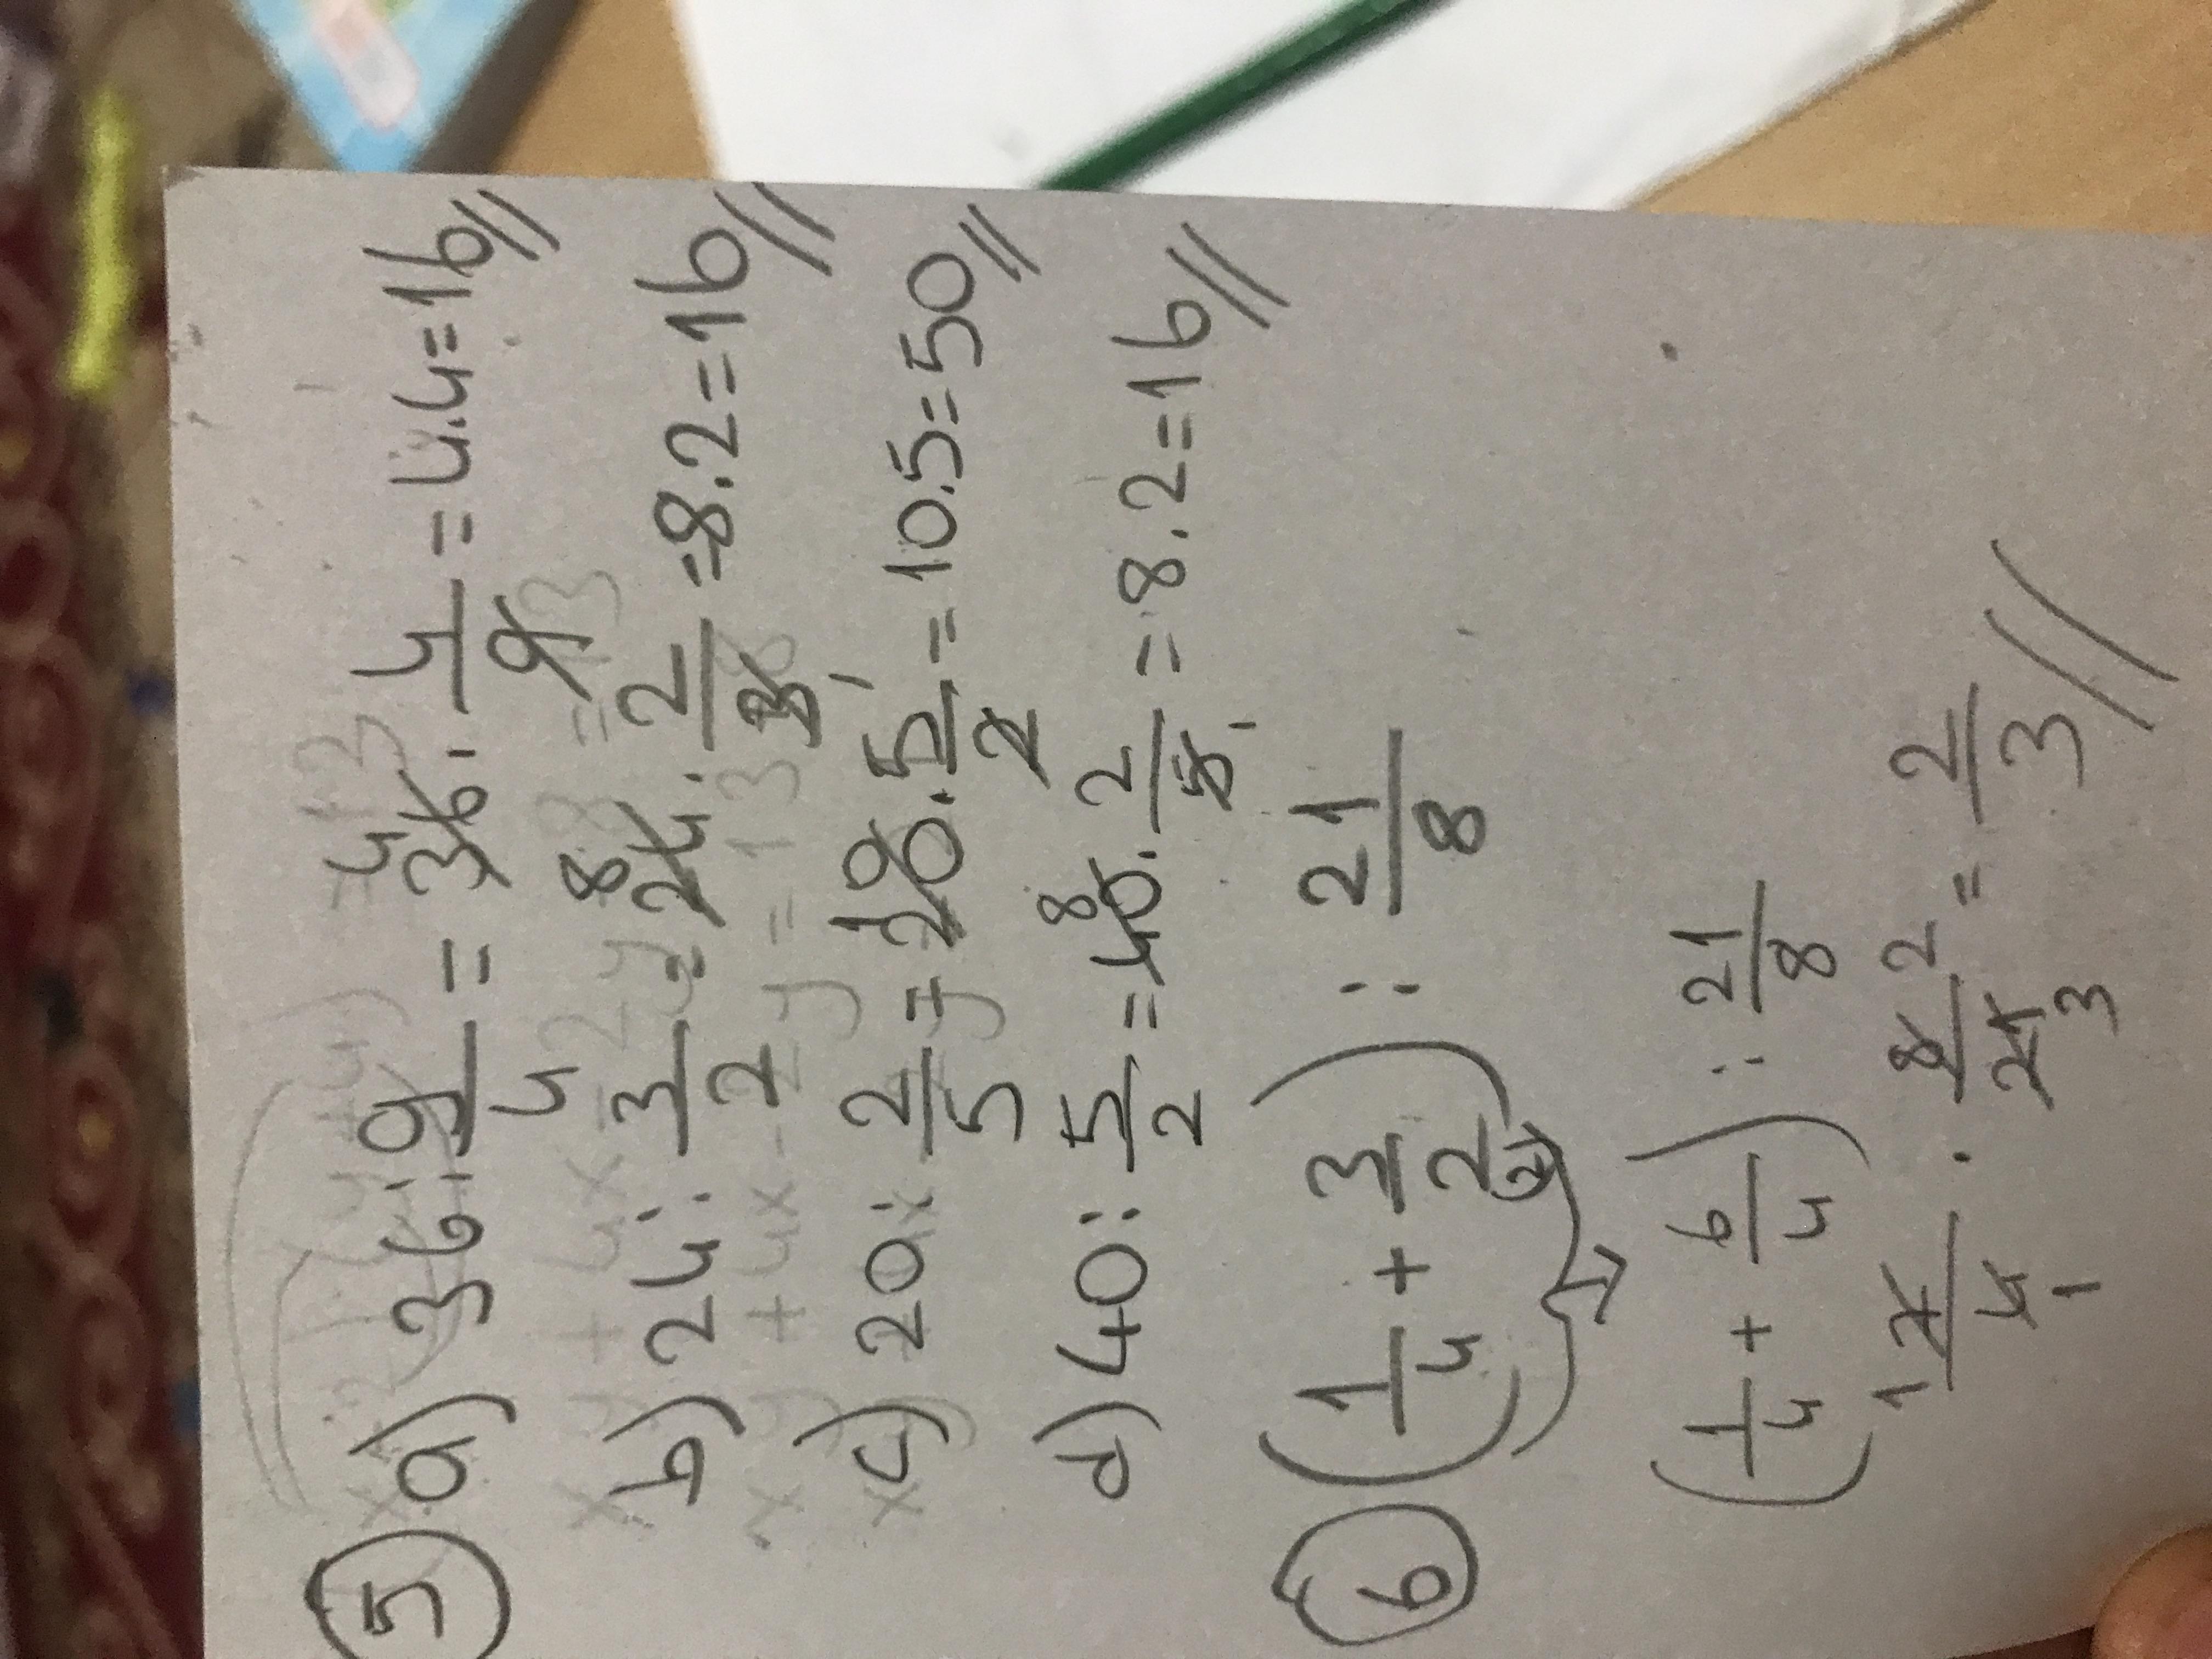 5) a) 36 : 9/4 = 36 4 . 4/9 = 4.4=16//
b) 24 : 3/2 = 24 8 . 2/3 = 8.2=16//
c) 20 : 2/5 = 20 10 . 5/2 1 = 10.5=50//
d) 40 : 5/2 = 40 8 . 2/5 1 = 8.2=16//
6 (1/4 + 3/2 (2)) : 21/8
(1/4 + 6/4) : 21/8
1 7/4 1 . 8/21 2 3 = 2/3 //